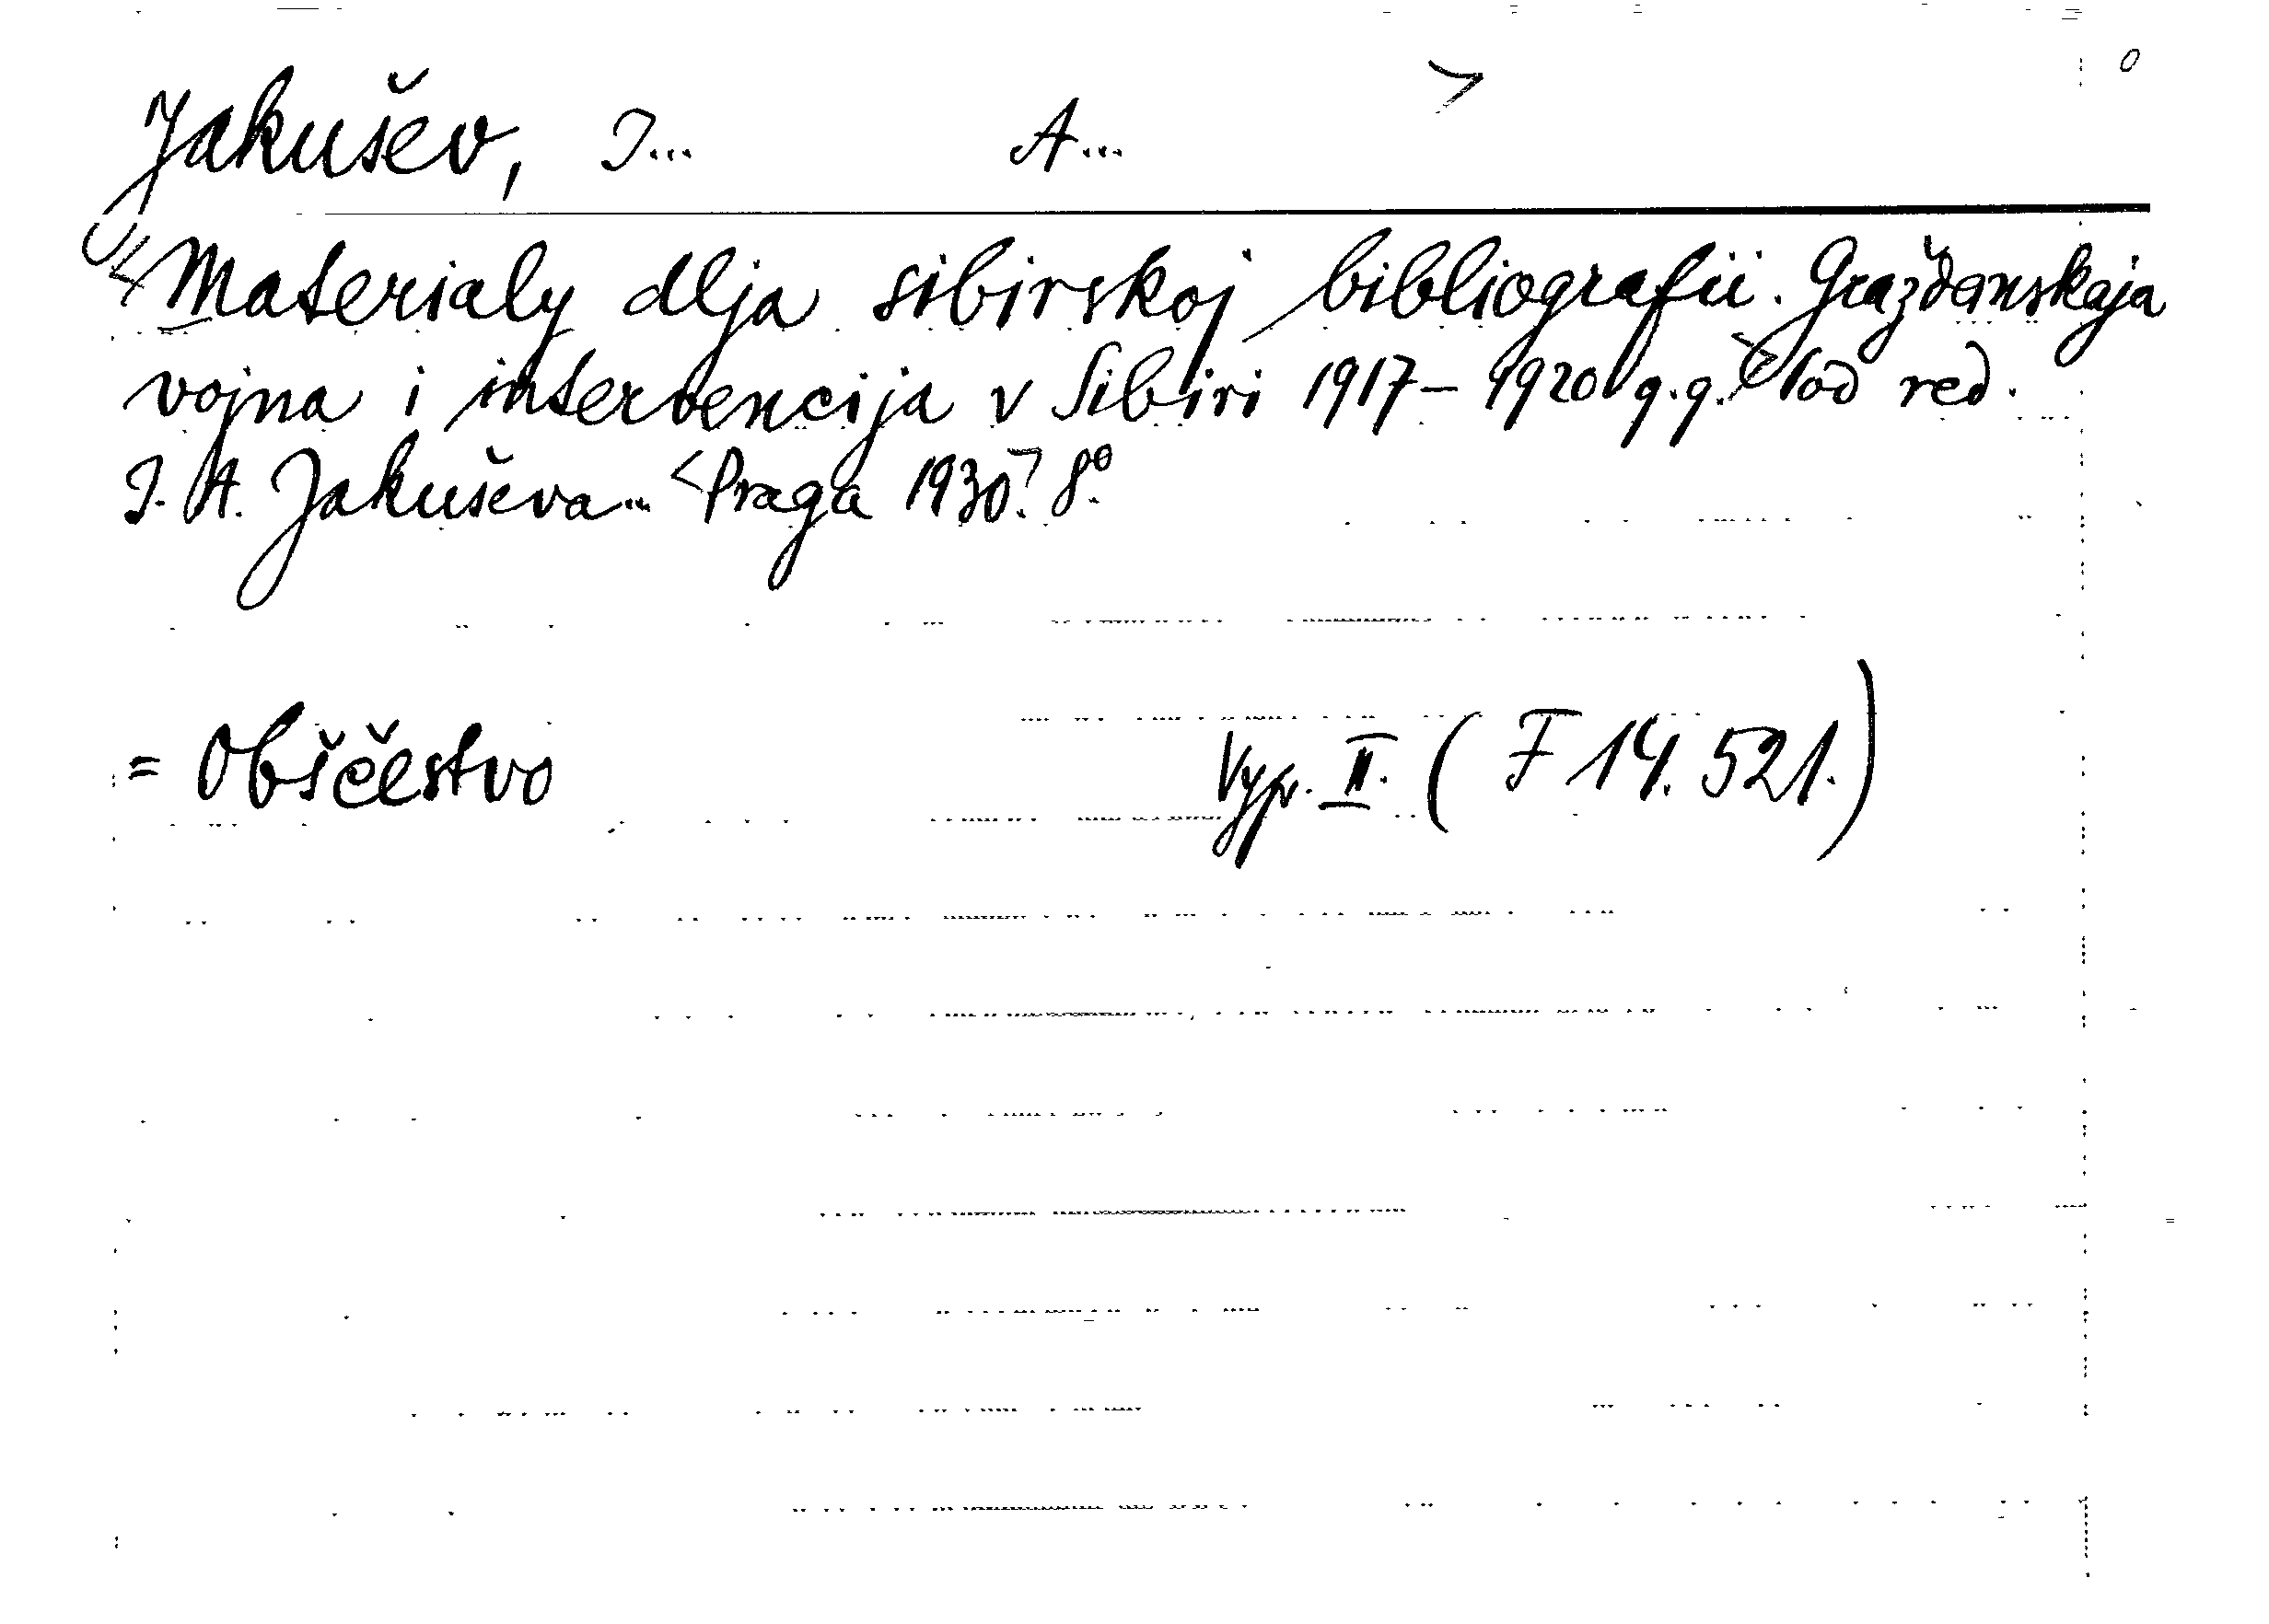 Jakušev, I... A... >
<Materialy dlja sibirskoj bibliografii. Graždanskaja
vojna i intervencija v Sibiri 1917-1920 g.g.> Pod red.
I. A. Jakuševa... <Praga 1930.> 8°.
= Obščestvo Vyp. II. (F 14.521.)